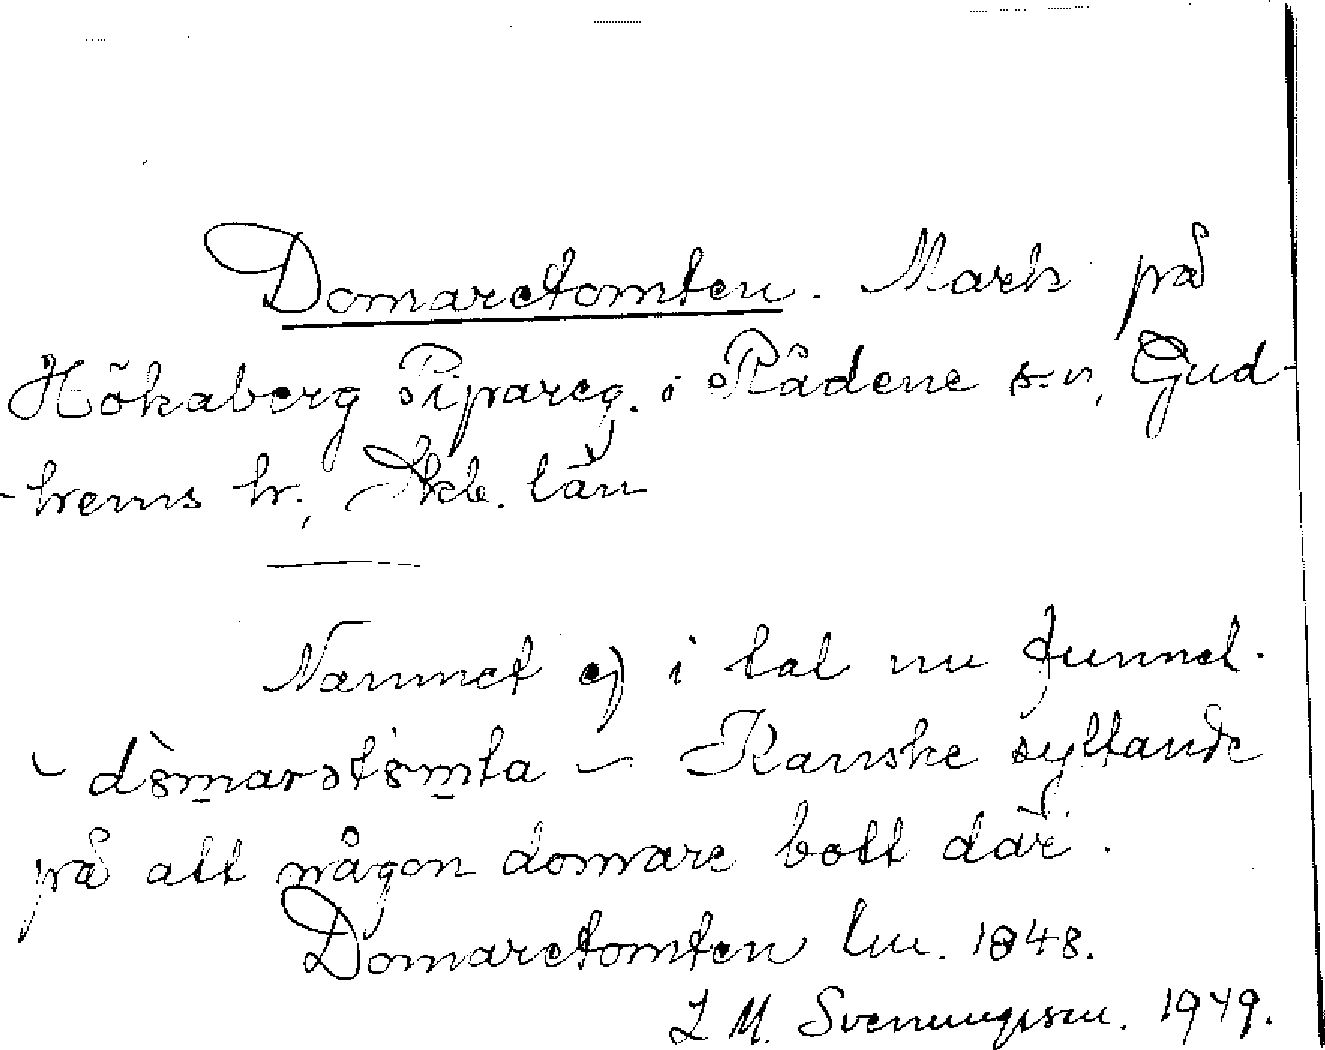 Domaretomten. Mark på
Hökaberg Pipareg. i Rådene sn, Gud-
-hems hr., Skb. län
Namnet ej i tal nu funnet.
- dòmarətòmta - Kanske syftande
på att någon domare bott där.
Domaretomten lm. 1848.
L M. Svenungsson. 1949.